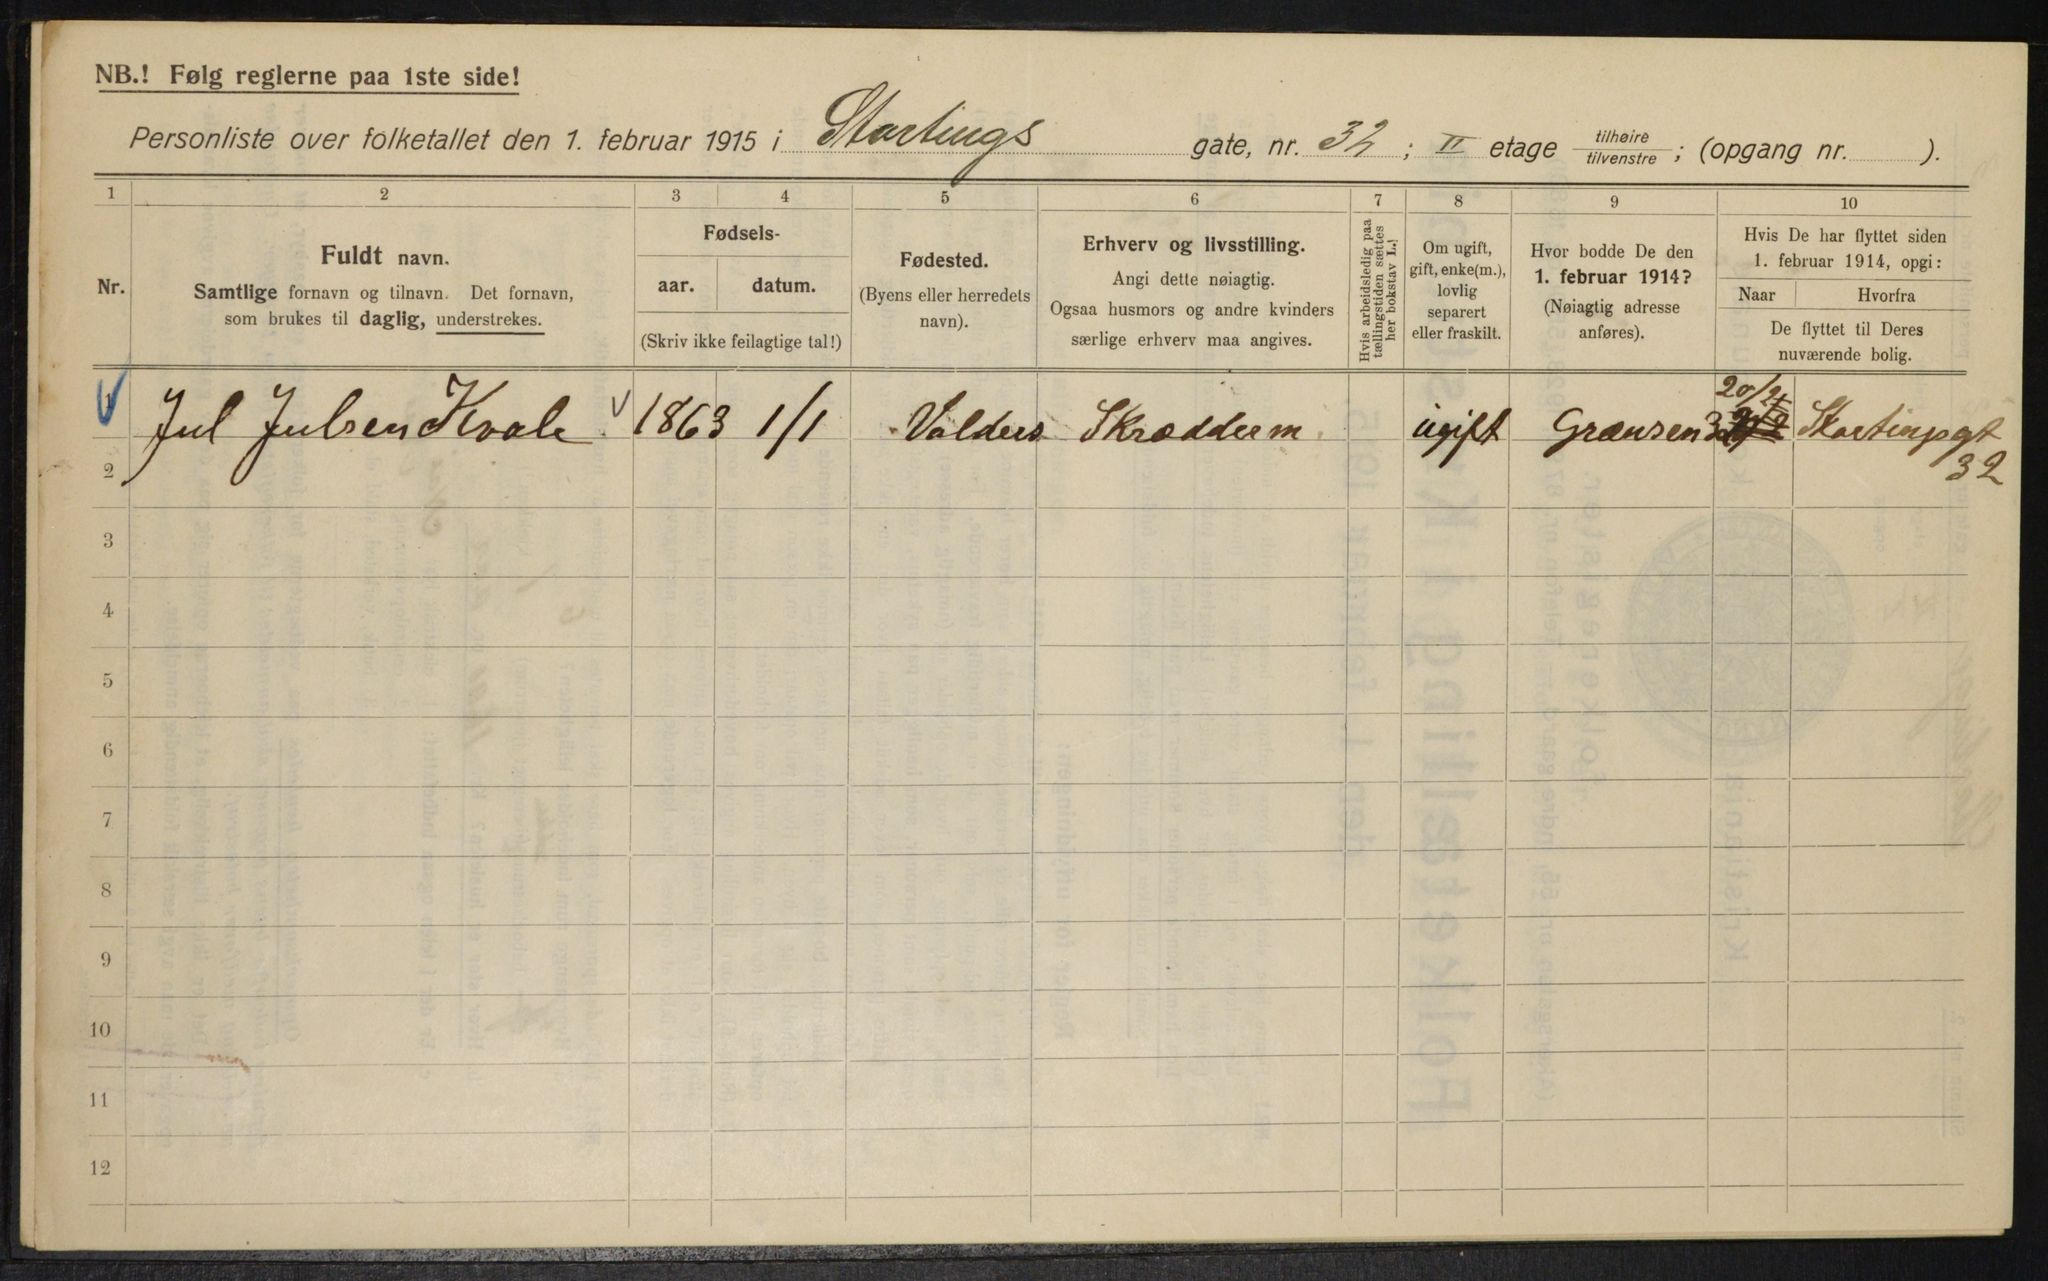 NB.! Følg reglerne paa 1ste side!
Personliste over folketallet den 1. februar 1915 i Stortings gate, nr. 32 ; II etage tilhøire/tilvenstre ; (opgang nr. ).
1 2 3 4 5 6 7 8 9 10
Nr.
Fuldt navn.
Samtlige fornavn og tilnavn. Det fornavn,
som brukes til daglig, understrekes.
Fødsels-
aar. datum.
(Skriv ikke feilagtige tal!)
Fødested.
(Byens eller herredets
navn).
Erhverv og livsstilling.
Angi dette nøiagtig.
Ogsaa husmors og andre kvinders
særlige erhverv maa angives.
Hvis arbeidsledig paa
tællingstiden sættes
her bokstav L.!
Om ugift,
gift, enke(m.),
lovlig
separert
eller fraskilt.
Hvor bodde De den
1. februar 1914?
(Nøiagtig adresse
anføres).
Hvis De har flyttet siden
1. februar 1914, opgi:
Naar Hvorfra
De flyttet til Deres
nuværende bolig.
1 Jul Julsen Kvale 1863 1/1 Valders Skrædderm ugift Grænsen Stortingsgt
32
2
3
4
5
6
7
8
9
10
11
12